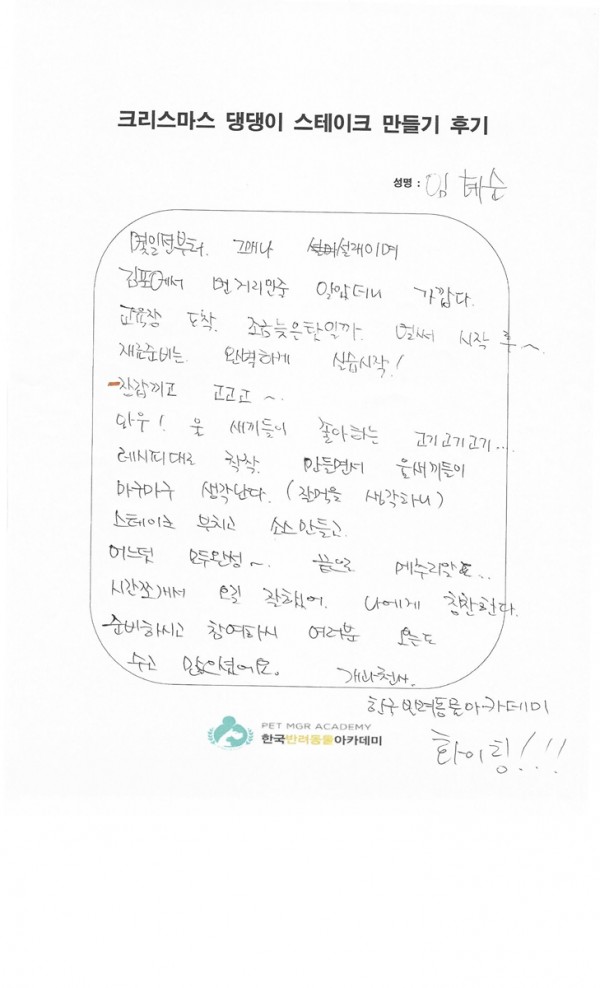 크리스마스 댕댕이 스테이크 만들기 후기
성명 : 임혜순
몇일전부터. 그래나 설래이며
김포에서 먼거리인줄 알았더니 가깝다.
교육장 도착. 조금늦은탓일까. 벌써 시작 후~.
재료준비는. 완벽하게 실습시작!
장갑끼고 고고고 ~.
와우! 울 새끼들이 좋아하는 고기고기고기...
레시피대로 착착. 만들면서 울새끼들이
마구마구 생각난다. (잘먹을 생각하니)
스테이크 부치고 소스만들고.
어느덧 모두완성~. 끝으로 메추리알로...
시간쪼개서 오길 잘했어. 나에게 칭찬한다.
준비하시고 참여하신 여러분 오늘도
수고 많으셨어요. 개과천사.
한국반려동물아카데미
화이팅!!!
PET MGR ACADEMY
한국반려동물아카데미